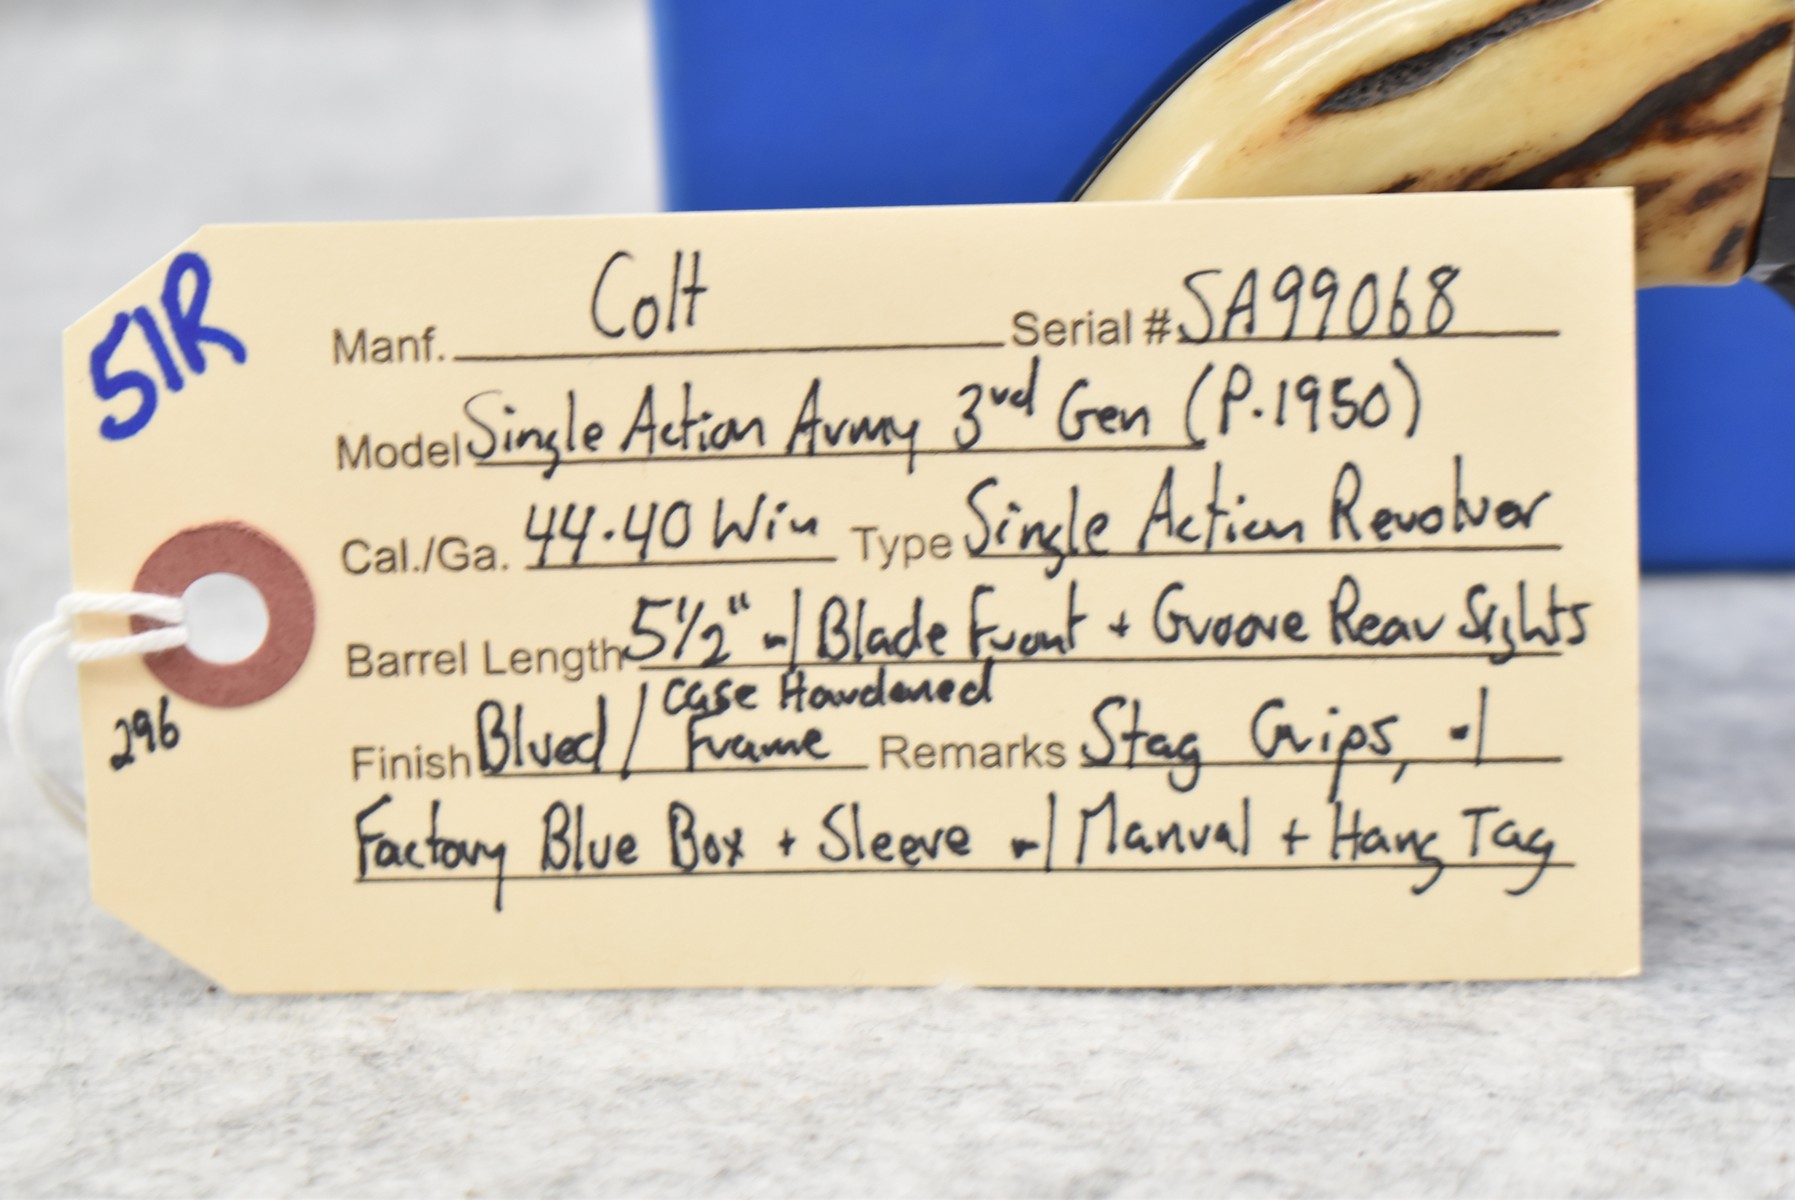 51R
Manf. Colt Serial # SA99068
Model Single Action Army 3rd Gen (P.1950)
Cal./Ga. 44.40 Win Type Single Action Revolver
Barrel Length 5 1/2" w/ Blade Front + Groove Rear Sights
Finish Blued / Case Hardened Frame Remarks Stag Grips, w/
Factory Blue Box + Sleeve w/ Manual + Hang Tag
296